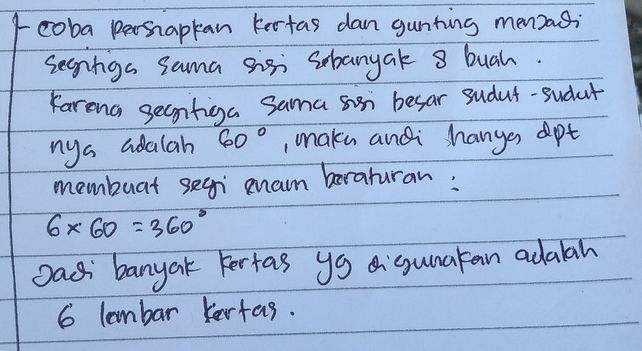 coba persiapkan kertas dan gunting menjadi
segitiga sama sisi sebanyak 8 buah.
Karena segitiga sama sisi besar sudut-sudut
nya adalah 60°, maka andi hanya dpt
membuat segi enam beraturan:
6 x 60 = 360°
Jadi banyak kertas yg digunakan adalah
6 lembar kertas.